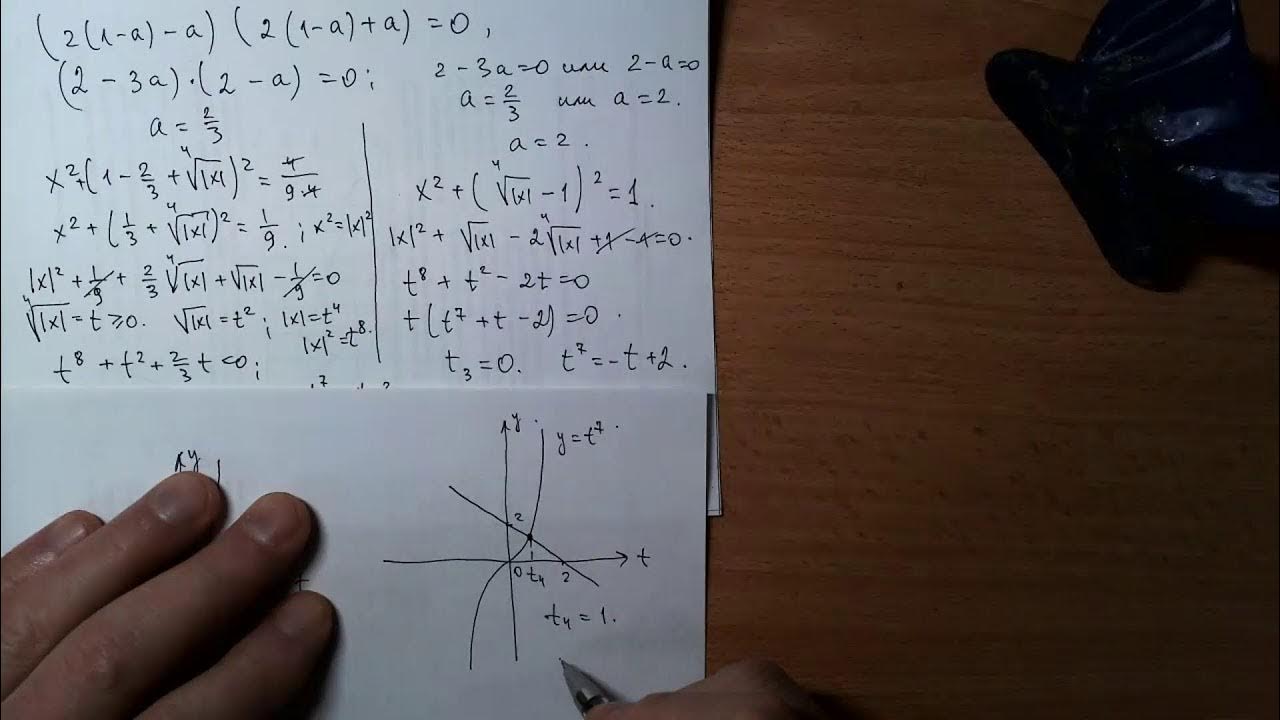 (2(1-a)-a) (2(1-a)+a) = 0,
(2-3a)·(2-a) = 0;
2-3a=0 или 2-a=0
a = 2/3 или a = 2.
a = 2/3
x²+(1-2/3+⁴√|x|)² = 4/(9·4)
x²+(1/3+⁴√|x|)² = 1/9. ; x²=|x|²
|x|²+1/9+2/3 ⁴√|x|+√|x|-1/9=0
⁴√|x| = t ≥ 0. √|x| = t² ; |x| = t⁴
|x|² = t⁸.
t⁸+t²+2/3 t = 0;
a = 2.
x²+(⁴√|x|-1)² = 1.
|x|²+√|x|-2⁴√|x|+1-1=0.
t⁸+t²-2t=0
t(t⁷+t-2)=0.
t₃=0. t⁷=-t+2.
y
y
y=t⁷.
2
0 t₄ 2
t
t₄ = 1.